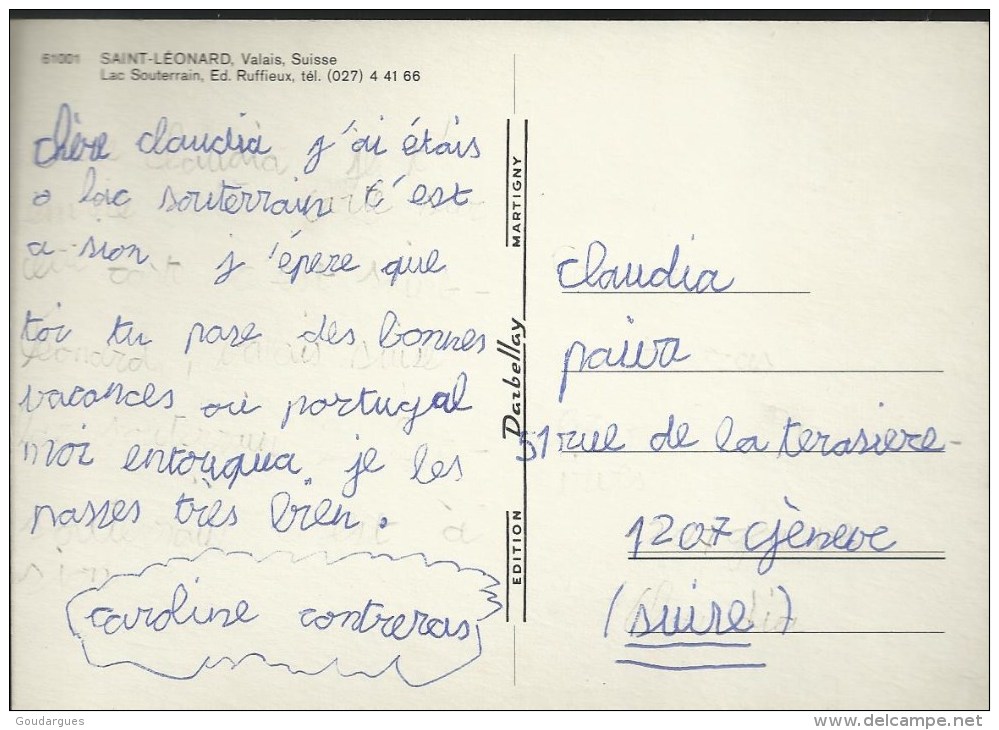 61001 SAINT-LÉONARD, Valais, Suisse
Lac Souterrain, Ed. Ruffieux, tél. (027) 4 41 66
chère claudia j'ai étais
o lac souterrain c'est
a sion j'épere que
toi tu pase des bonnes
vacances ou portugal
moi entouqua je les
passes très bien.
caroline contreras
EDITION Darbellay MARTIGNY
claudia
paiva
51 rue de la terasiere-
1207 Gèneve
(suire)
Goudargues
delcampe.net